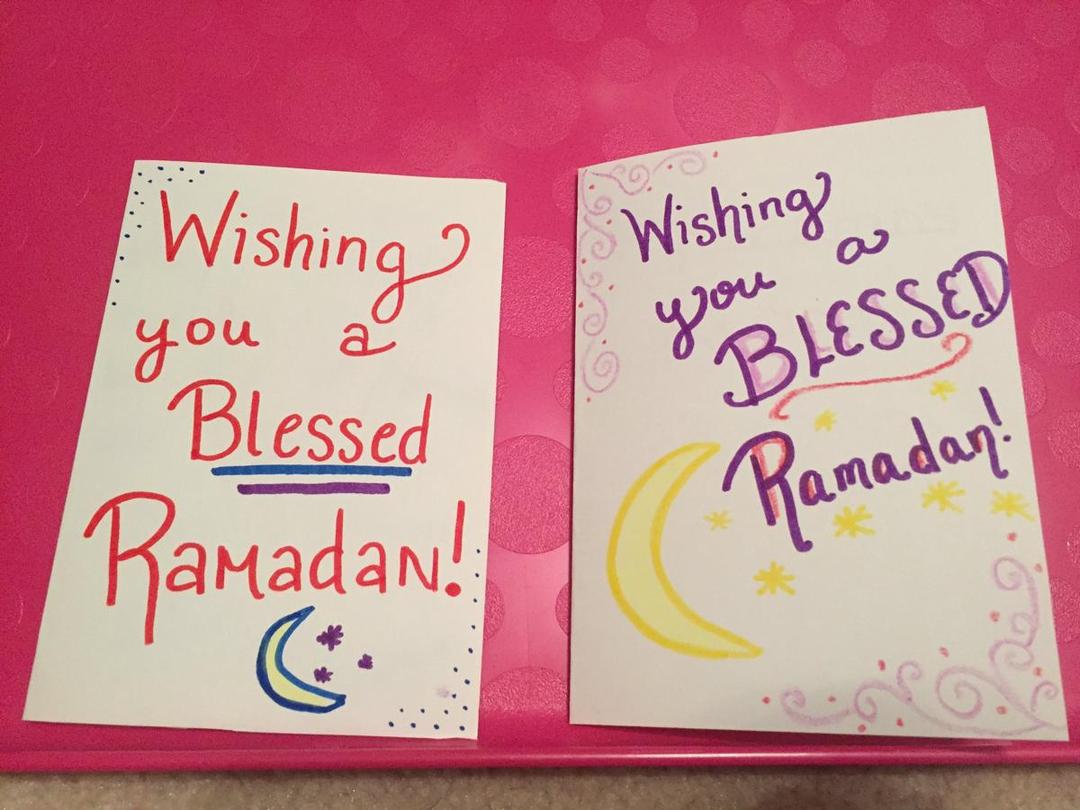 Wishing
you a
Blessed
Ramadan!
Wishing
you a
BLESSED
Ramadan!